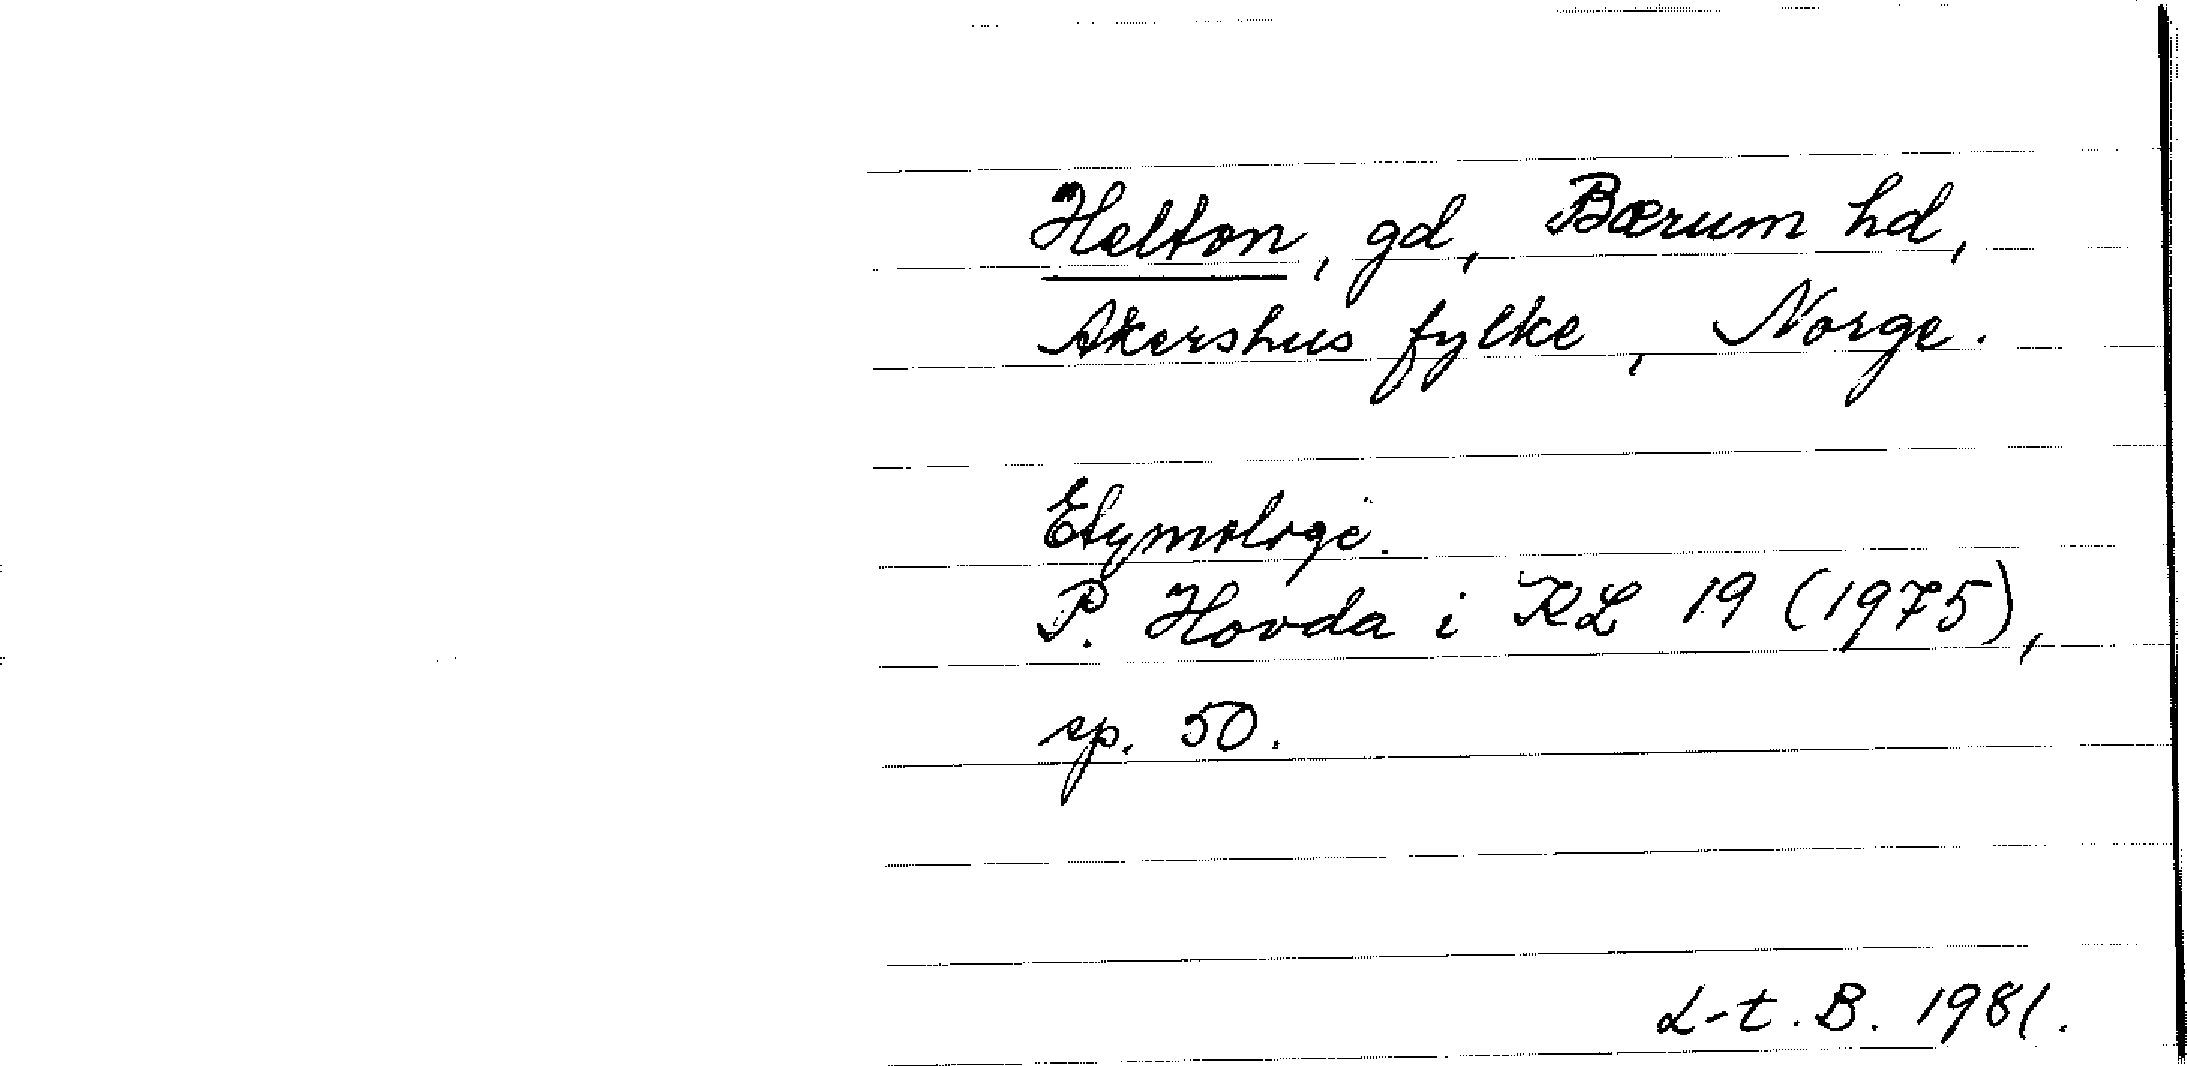 Helton, gd, Bærum hd,
Akershus fylke, Norge.
Etymologi.
P. Hovda i KL 19 (1975),
sp. 50.
L-t. B. 1981.